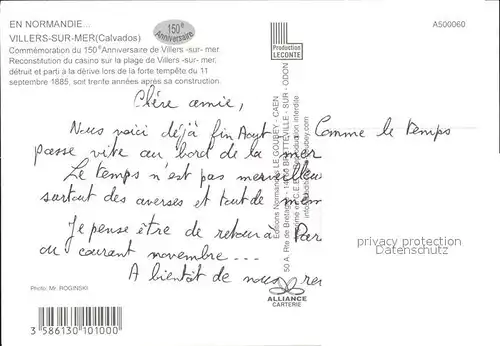 EN NORMANDIE...
VILLERS-SUR-MER(Calvados)
150e Anniversaire
A500060
Commémoration du 150e Anniversaire de Villers -sur- mer
Reconstitution du casino sur la plage de Villers -sur- mer,
détruit et parti à la dérive lors de la forte tempête du 11
septembre 1885, soit trente années après sa construction.
Production
LECONTE
Chère amie,
Nous voici déjà fin Aout - Comme le temps
passe vite au bord de la mer
Le temps n'est pas merveilleu
surtout des averses et tout de mem
Je pense être de retour à Par
ou courant novembre...
A bientôt de nous re
Editions Normandes LE GOUBEY - CAEN
50 A, Rte de Bretagne - 14760 BRETTEVILLE - SUR - ODON
privacy protection
Datenschutz
Photo: Mr. ROGINSKI
ALLIANCE
CARTERIE
3 586130 101000